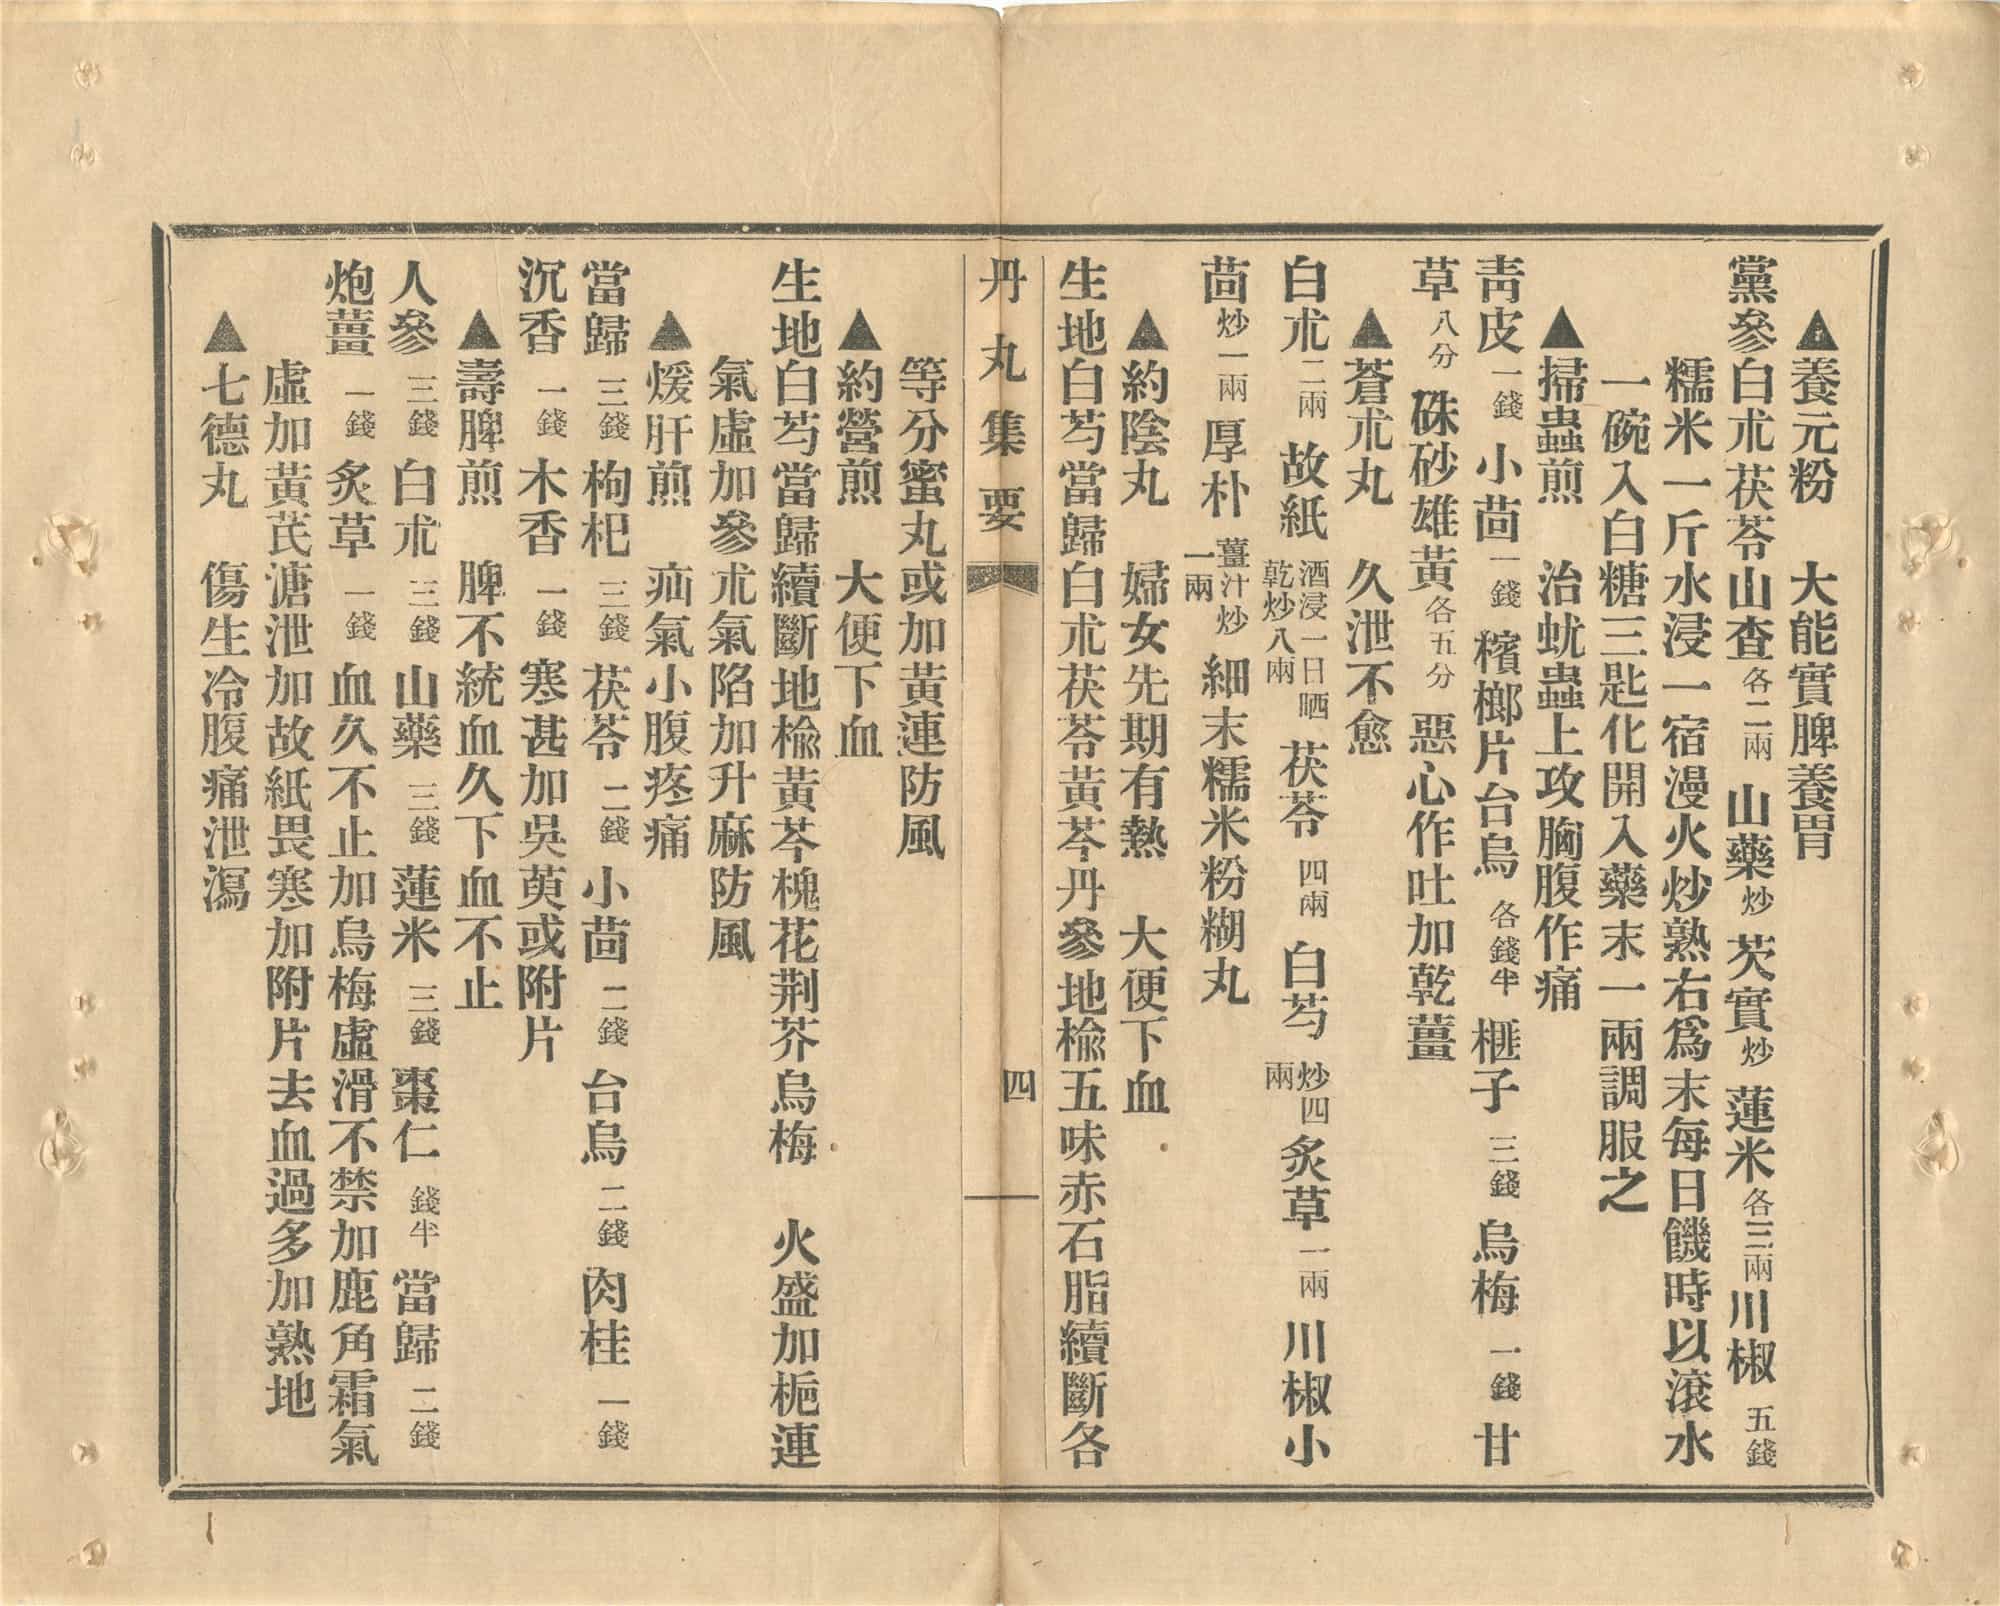 ▲養元粉　大能實脾養胃
黨參白朮茯苓山查各二兩　山藥炒　芡實炒　蓮米各三兩　川椒　五錢
糯米一斤水浸一宿漫火炒熟右爲末每日饑時以滾水
一碗入白糖三匙化開入藥末一兩調服之
▲掃蟲煎　治蚘蟲上攻胸腹作痛
青皮一錢　小茴一錢　檳榔片台烏　各錢半　榧子　三錢　烏梅　一錢　甘
草八分　硃砂雄黃各五分　惡心作吐加乾薑
▲蒼朮丸　久泄不愈
白朮二兩　故紙　酒浸一日晒乾炒八兩　茯苓　四兩　白芍　炒四兩　炙草一兩　川椒小
茴炒一兩　厚朴　薑汁炒一兩　細末糯米粉糊丸
▲約陰丸　婦女先期有熱　大便下血
生地白芍當歸白朮茯苓黃芩丹參地榆五味赤石脂續斷各
丹丸集要　四
等分蜜丸或加黃連防風
▲約營煎　大便下血
生地白芍當歸續斷地榆黃芩槐花荆芥烏梅　火盛加梔連
氣虛加參朮氣陷加升麻防風
▲煖肝煎　疝氣小腹疼痛
當歸　三錢　枸杞　三錢　茯苓　二錢　小茴　二錢　台烏　二錢　肉桂　一錢
沉香　一錢　木香　一錢　寒甚加吳萸或附片
▲壽脾煎　脾不統血久下血不止
人參　三錢　白朮　三錢　山藥　三錢　蓮米　三錢　棗仁　錢半　當歸　二錢
炮薑　一錢　炙草　一錢　血久不止加烏梅虛滑不禁加鹿角霜氣
虛加黃芪溏泄加故紙畏寒加附片去血過多加熟地
▲七德丸　傷生冷腹痛泄瀉